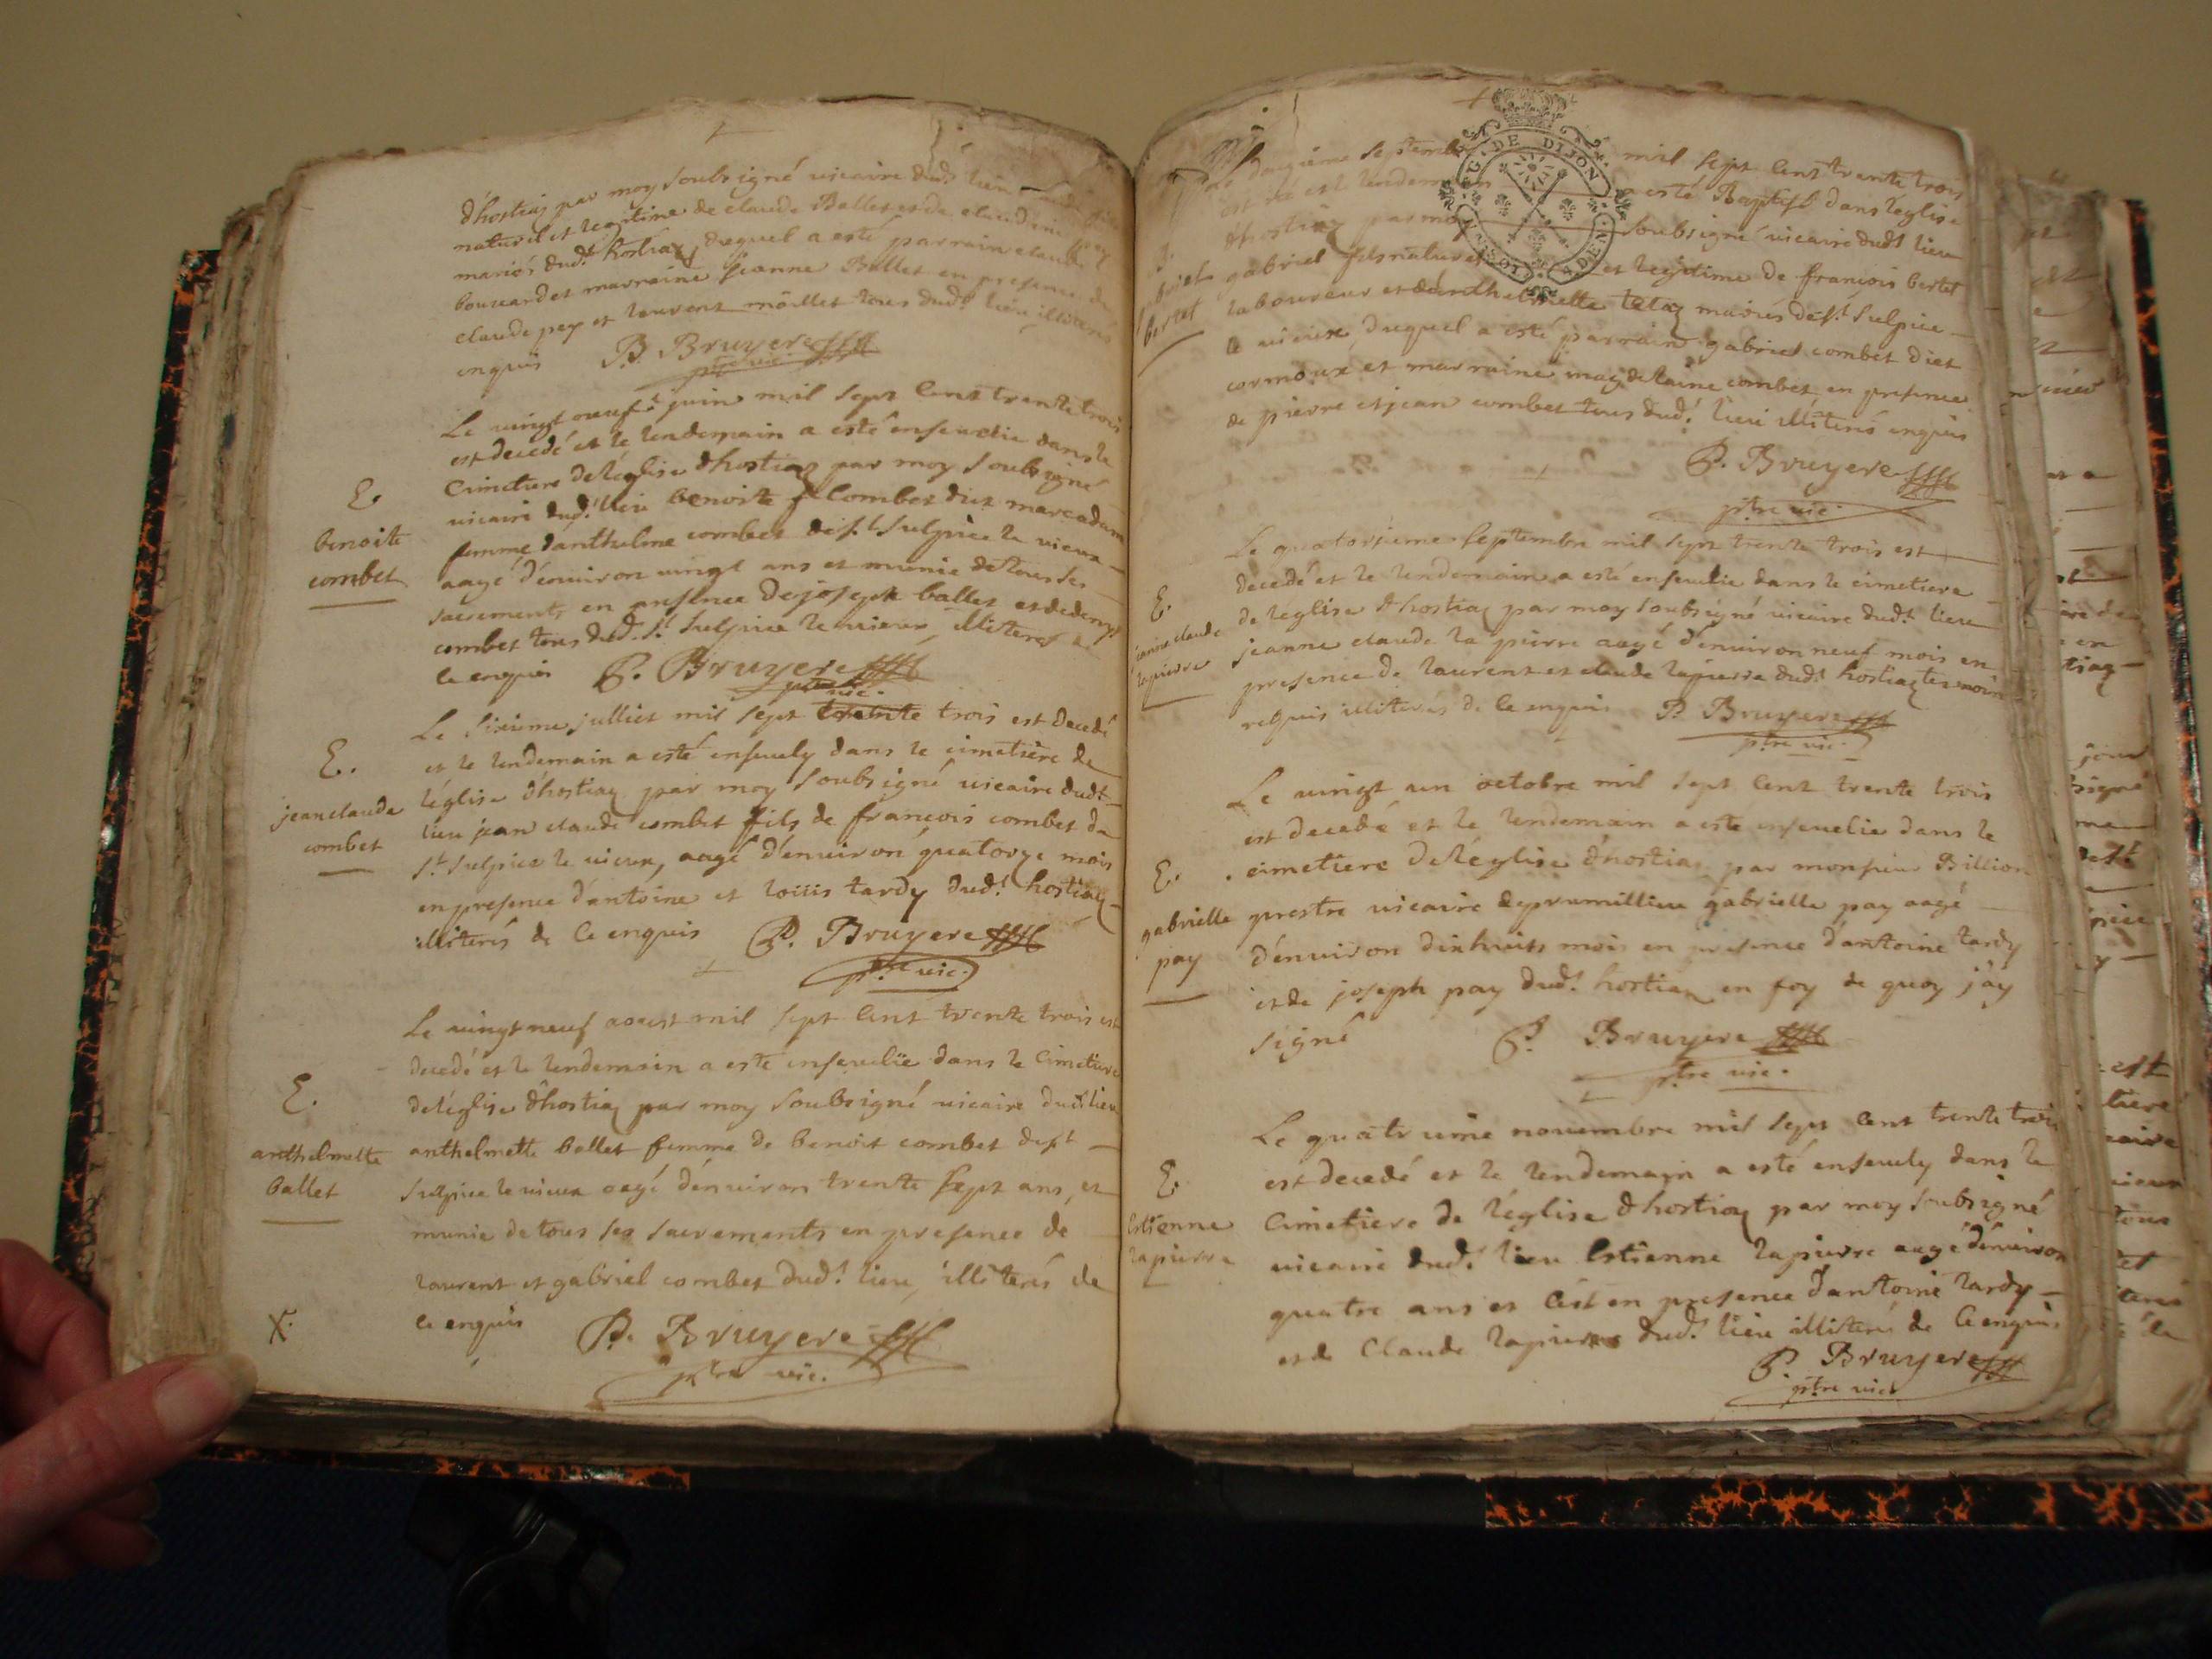 d'hostiaz par moy soubsigné vicaire dud.t lieu
naturel et legitime de claude Ballet et de claudine
mariés dud.t hostiaz, duquel a esté parrain claude
bouvard et marraine jeanne Ballet en presence de
claude pey et laurent maillet tous dud.t lieu illiterés
enquis P. Bruyere
ptre vic.
Le vingt neuf juin mil sept Cent trente trois
est decedé et le lendemain a esté ensevelie dans le
Cimetiere de leglise d'hostiaz par moy soubsigné
vicaire dud.t lieu benoite Combet dit
femme d'anthelme combet de s.t Sulpice le vieux
aagé d'environ vingt ans et munie de tous ses
sacrements en presence de joseph ballet et de
combet tous dud. s.t Sulpice le vieux, illiterés de
ce enquis P. Bruyere
ptre vic.
E.
benoite
combet
Le sixieme julliet mil sept trente trois est decedé
et le lendemain a esté ensevely dans le cimetiere de
l'église d'hostiaz par moy soubsigné vicaire dudt
lieu jean claude combet fils de françois combet de
s.t Sulpice le vieux, aagé d'environ quatorze mois
en presence d'antoine et loüis tardy dud.t hostiaz
illiterés de Ce enquis P. Bruyere
ptre vic.
E.
jean claude
combet
Le vingt neuf aoust mil sept Cent trente trois est
decedé et le lendemain a esté ensevelie dans le Cimetiere
de l'église d'hostiaz par moy soubsigné vicaire dud.t lieu
anthelmette ballet femme de benoit combet de s.t
Sulpice le vieux aagé d'environ trente sept ans, et
munie de tous ses sacrements en presence de
laurent et gabriel combet dud.t lieu, illiterés de
ce enquis P. Bruyere
ptre vic.
E.
anthelmette
ballet
X.
septembre mil sept Cent trente trois
est né et le lendemain a esté Baptisé dans l'eglise
d'hostiaz par moy soubsigné vicaire dudt lieu
gabriel fils naturel et legitime de françois bertet
laboureur et d'anthelmette mariés de s.t Sulpice
le vieux, duquel a esté parrain gabriel combet dict
cormoux et marraine magdelaine combet, en presence
de pierre et jean combet tous dud.t lieu illiterés enquis
P. Bruyere
ptre vic.
gabriel
bertet
G. DE DIJON
Le quatorsieme septembre mil sept trente trois est
decedé et le lendemain a esté ensevelie dans le cimetiere
de leglise d'hostiaz par moy soubsigné vicaire dud.t lieu
jeanne claude la pierre aagé d'environ neuf mois en
presence de laurent et claude lapierre dud.t hostiaz temoins
requis illiterés de Ce enquis P. Bruyere
ptre vic.
E.
jeanne claude
lapierre
Le vingt un octobre mil sept Cent trente trois
est decedé et le lendemain a esté ensevelie dans le
cimetiere de l'église d'hostiaz par monsieur Billion
prestre vicaire de prumillieu gabrielle pay aagé
d'environ dixhuit mois en presence d'antoine tardy
et de joseph pay dud.t hostiaz en foy de quoy j'ay
signé P. Bruyere
ptre vic.
E.
gabrielle
pay
Le quatrieme novembre mil sept Cent trente trois
est decedé et le lendemain a esté ensevely dans le
Cimetiere de l'église d'hostiaz par moy soubsigné
vicaire dud.t lieu Estienne lapierre aagé d'environ
quatre ans et Cest en presence d'antoine tardy
et de Claude lapierre dud.t lieu illiterés de Ce enquis
P. Bruyere
ptre vic.
E.
Estienne
lapierre